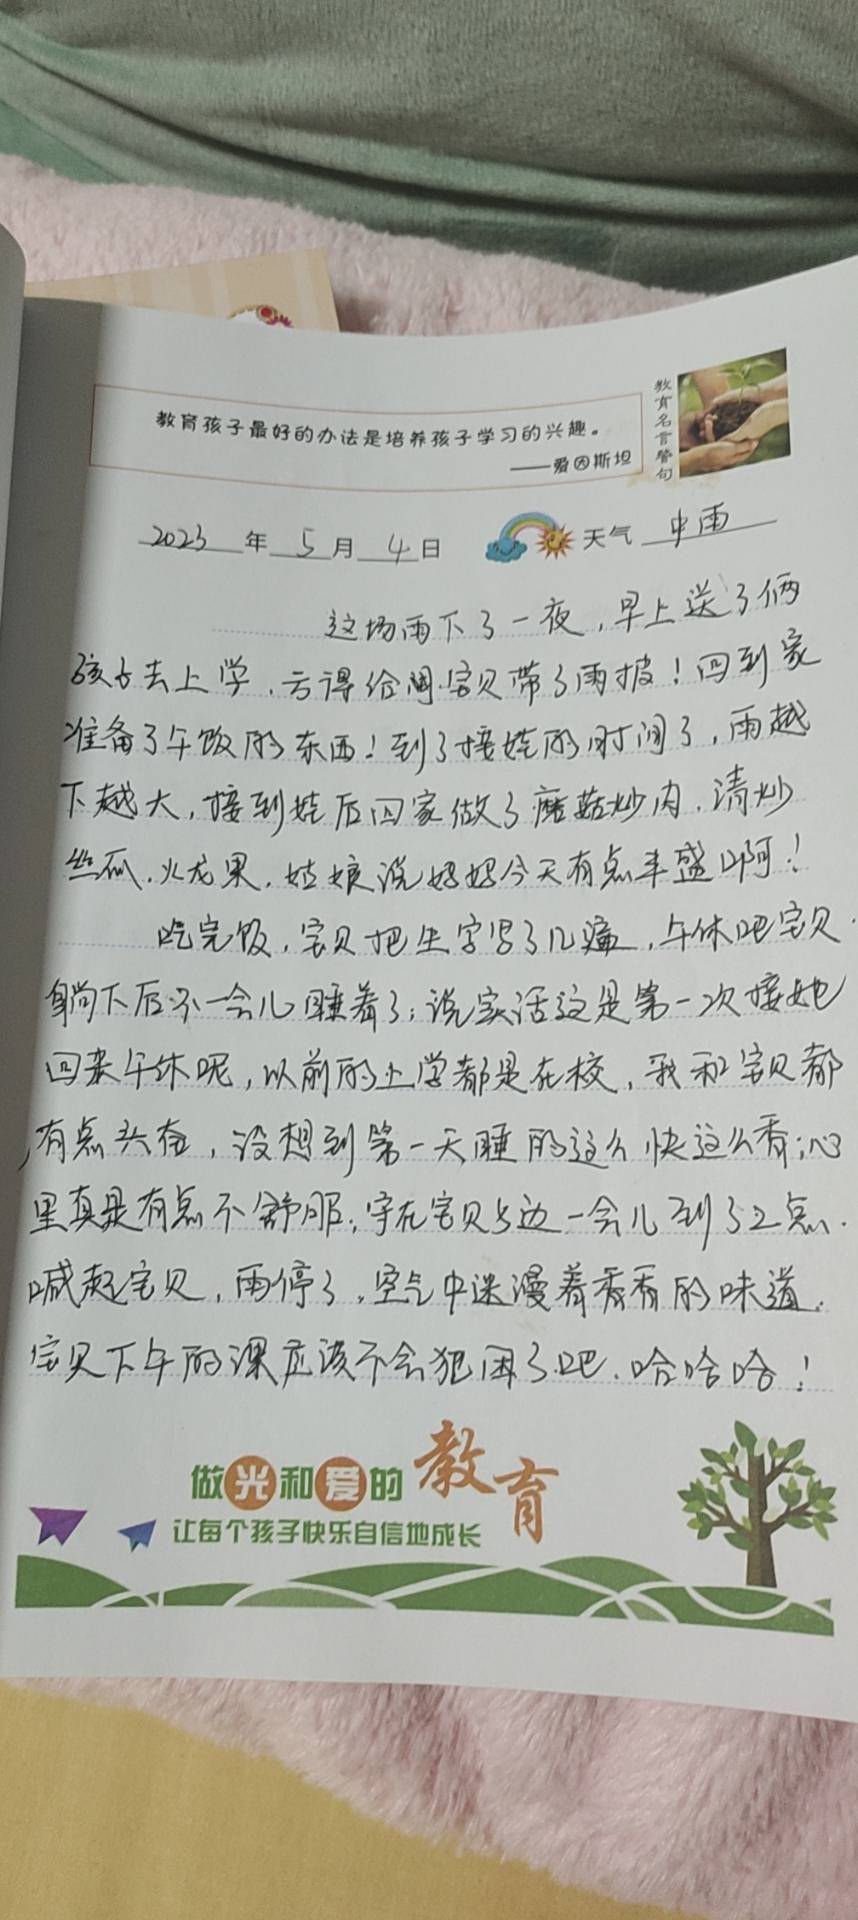 教育孩子最好的办法是培养孩子学习的兴趣。
——爱因斯坦
教育名言警句
2023年5月4日 天气 中雨
这场雨下了一夜，早上送了俩
孩子去上学，亏得给闺宝贝带了雨披！回到家
准备了午饭的东西！到了接娃的时间了，雨越
下越大，接到娃后回家做了蘑菇炒肉，清炒
丝瓜，火龙果，姑娘说妈妈今天有点丰盛啊！
吃完饭，宝贝把生字写了几遍，午休吧宝贝
躺下后不一会儿睡着了；说实话这是第一次接她
回来午休呢，以前的上学都是在校，我和宝贝都
有点兴奋，没想到第一天睡的这么快这么香；心
里真是有点不舒服；守在宝贝身边一会儿到了2点，
喊起宝贝，雨停了，空气中迷漫着香香的味道，
宝贝下午的课应该不会犯困了吧，哈哈哈！
做光和爱的教育
让每个孩子快乐自信地成长